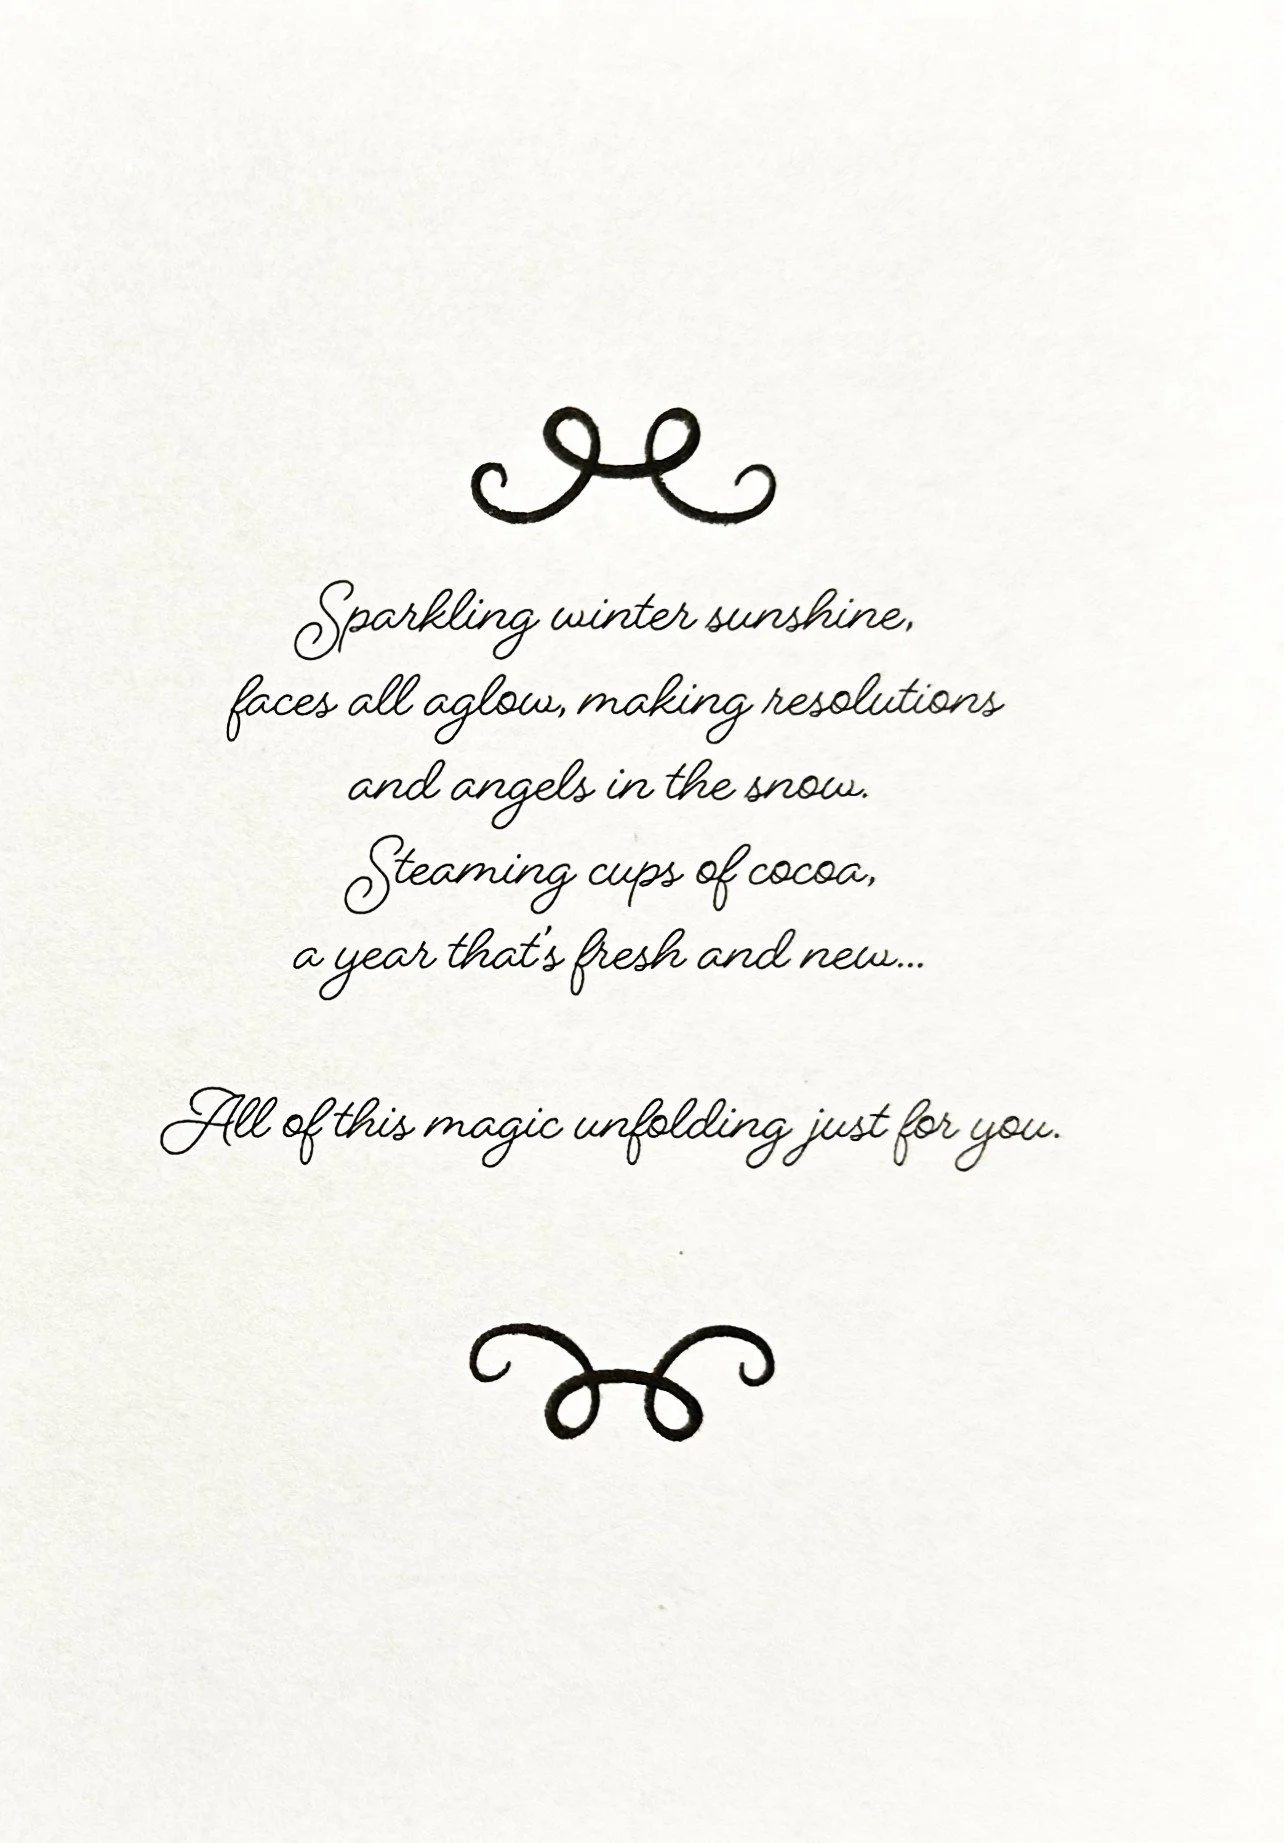 Sparkling winter sunshine,
faces all aglow, making resolutions
and angels in the snow.
Steaming cups of cocoa,
a year that's fresh and new...
All of this magic unfolding just for you.